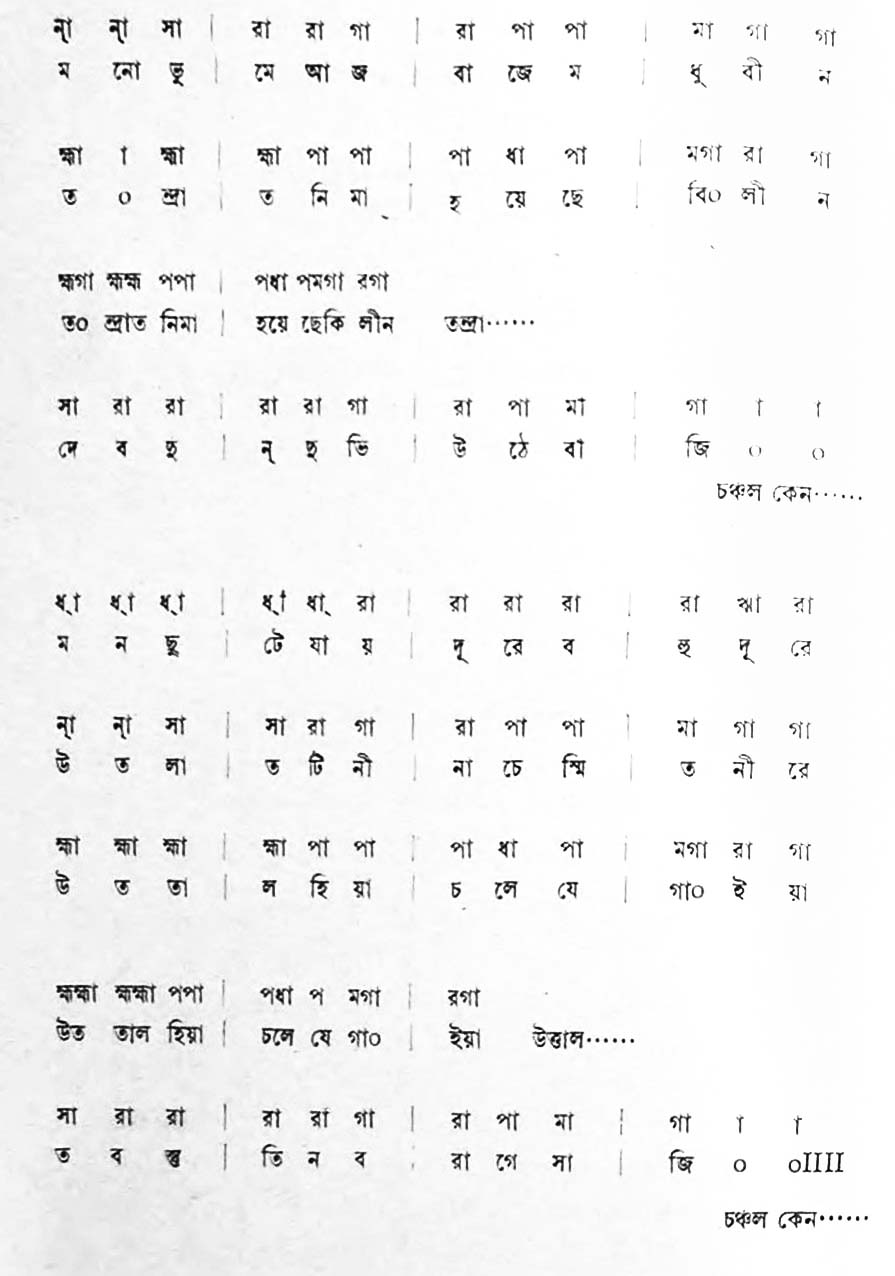 ন্া ন্া সা | রা রা গা | রা পা পা | মা গা গা
ম নো ভূ | মে আ জ | বা জে ম | ধু বী ন
হ্মা া হ্মা | হ্মা পা পা | পা ধা পা | মগা রা গা
ত ০ ন্দ্রা | ত নি মা | হ য়ে ছে | বি০ লী ন
হ্মগা হ্মহ্ম পপা | পধা পমগা রগা
ত০ ন্দ্রাত নিমা | হয়ে ছেকি লীন তন্দ্রা······
সা রা রা | রা রা গা | রা পা মা | গা া া
দে ব হু | ন্ হু ভি | উ ঠে বা | জি ০ ০
চঞ্চল কেন······
ধ্া ধ্া ধ্া | ধ্া ধা্ রা | রা রা রা | রা ঋা রা
ম ন ছু | টে যা য় | দূ রে ব | হু দূ রে
ন্া ন্া সা | সা রা গা | রা পা পা | মা গা গা
উ ত লা | ত টি নী | না চে স্মি | ত নী রে
হ্মা হ্মা হ্মা | হ্মা পা পা | পা ধা পা | মগা রা গা
উ ত তা | ল হি য়া | চ লে যে | গা০ ই য়া
হ্মহ্মা হ্মহ্মা পপা | পধা প মগা | রগা
উত তাল হিয়া | চলে যে গা০ | ইয়া উত্তাল······
সা রা রা | রা রা গা | রা পা মা | গা া া
ত ব স্তু | তি ন ব | রা গে সা | জি ০ ০IIII
চঞ্চল কেন······